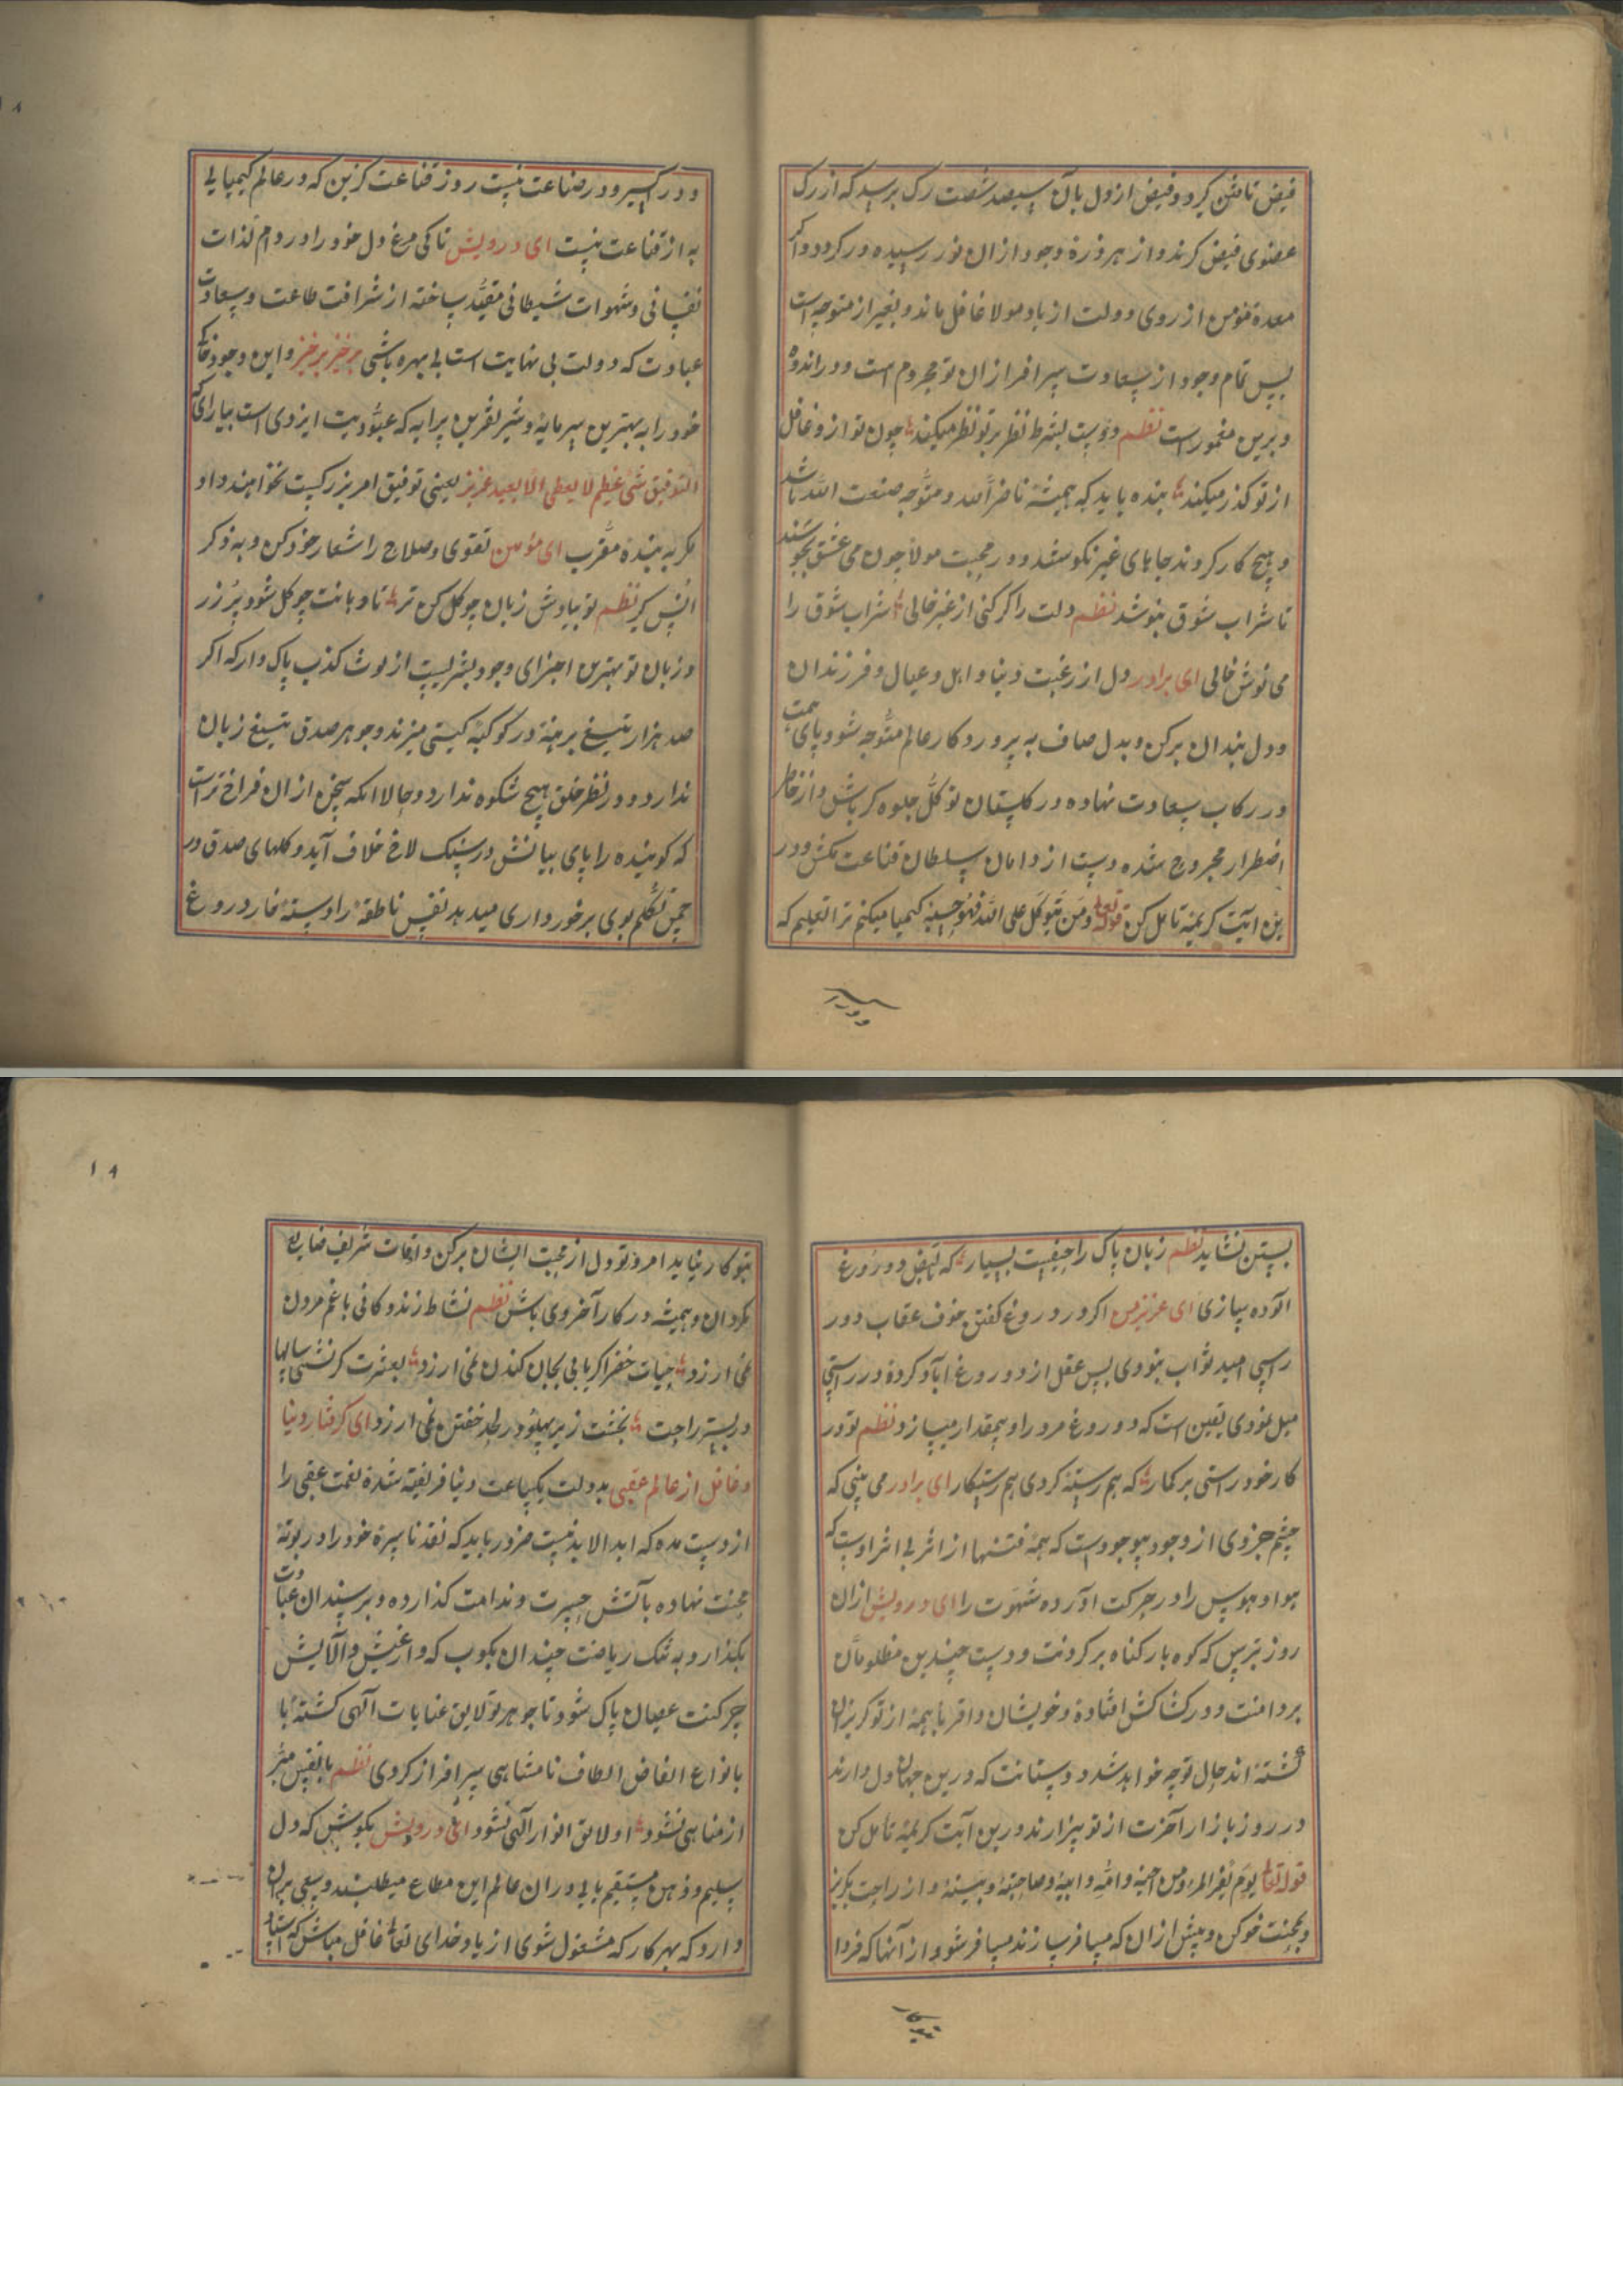 فیض تامتن کیرد و فیض از دل بآن سیصد شصت رک برسد که از رک
عضوی فیض کرند و از هر ذرهٔ وجود از ان نور رسیده در کردد و اکر
معدهٔ مؤمن از روی دولت از یاد مولا غافل ماند و بغیر از متوجه است
پس تمام وجود از سعادت سر افراز ان تو محروم است و در اندوه
و برین مغمور است نظم دوست بشرط نظر بر تو نظر میکند چون تو ازو غافل
از تو کذر میکند بنده باید که همیشه ناضراً لله و متوجه صنعت الله باشد
و هیچ کار کردند جاهای غیر نکوشد و در محبت مولا چون می عشق بجوشند
تا شراب شوق بنوشد نظم دلت را کر کنی از غیر خالی شراب شوق را
می نوش خالی ای برادر دل از رغبت دنیا و اهل و عیال و فرزندان
و دل بندان برکن و بدل صاف به پروردکار عالم متوجه شو و پای همت
در رکاب سعادت نهاده در کلستان توکل جلوه کر باش و از خاطر
اضطرار مجروح شده دست از دامان سلطان قناعت مکش و در
این آیت کریمه تامل کن قوله تعالی و من یتوکل علی الله فهو حسبه کیمیا میکنم ترا تعلیم که
و در اکسیر و در صناعت نیست روز قناعت کزین که در عالم کیمیایی
به از قناعت نیست ای درویش تا کی مرغ دل خود را در دام لذات
نفسانی و شهوات شیطانی مقید ساخته از شرافت طاعت و سعادت
عبادت که دولت بی نهایت است بی بهره باشی برخیز برخیز و این وجود خاکی
خود را به بهترین سرمایه و شریفترین پرایه که عبودیت ایزدی است بیارای که
التوفیق شیٔ عظیم لا یعطی الا بعبد عزیز یعنی توفیق امر بزرکیست نخواهند داد
مکر به بندهٔ مقرب ای مؤمن تقوی و صلاح را شعار خود کن و به ذکر
انس کیر نظم تو بیادش زبان چو کل کن تر تا دهانت چو کل شود پر زر
و زبان تو بهترین اجزای وجود بشریست از لوث کذب پاک دار که اکر
صد هزار تیغ برهنه در کوکبه کیتی میزند و جوهر صدق تیغ زبان
ندارد و در نظر خلق هیچ شکوه ندارد و حالا انکه سخن از ان فراخ تر است
که کوینده را پای بیانش در سنک لاخ خلاف آید و کلهای صدق در
چمن تکلم بوی برخورداری میدهد نفس ناطقه را دسته خار دروغ
در اکسیر
بستن نشاید نظم زبان پاک را حیفست بسیار که از فعل و دروغ
آلوده سازی ای عزیز من اکر در دروغ کفتن خوف عقاب و در
راستی امید ثواب بنودی پس عقل از دو دروغ ابا و کرده در راستی
میل نمودی یقین است که دروغ مرد را بیمقدار میسازد نظم تو در
کار خود راستی بر کمار که هم رسته کردی هم رستکار ای برادر می بینی که
چشم جزوی از وجود موجودست که همه فتنها از اثر بی اثر اوست که
هوا و هوس را در حرکت آورده شهوت را ای درویش از ان
روز بترس که کوه بار کناه بر کردنت و دست چندین مظلومان
بر دامنت و در کشاکش افتاده و خویشان و اقربا همه از تو کریزان
کشته اند حال تو چه خواهد شد و دوستانت که درین جهان دل دارند
در روز بازار آخرت از تو بیزارند و درین آیت کریمه تامل کن
قوله تعالی یوم یفر المرء من اخیه و امه و ابیه و صاحبته و بنیه و از راحت بکریز
و بمحنت خو کن و پیش از ان که مسافر سازند مسافر شو و از آنها که فردا
بتو کار
بتو کار نیاید امروز تو دل از محبت ایشان برکن و اوقات شریف ضایع
مکردان و همیشه در کار آخروی باش نظم نشاط زندکانی با غم مردن
نمی ارزد حیات خضر اکر یابی بجان کندن نمی ارزد بعشرت کر نشینی سالها
در بستر راحت بخشت زیر پهلو در لحد خفتن نمی ارزد ای کرفتار دنیا
و غافل از عالم عقبی بدولت یکساعت دنیا فریفته شدهٔ نعمت عقبی را
از دست مده که ابد الابدیست ضرور باید که نقد ناسرهٔ خود را در بوتهٔ
محنت نهاده بآتش حسرت و ندامت کذارده و بر سندان عبادت
بکذار و به تنک ریاضت چندان بکوب که و از غش و آلایش
چرکنت عصیان پاک شود تا جوهر تو لایق عنایات آلهی کشته با
بانواع الفاض الطاف نامتناهی سرافراز کردی نظم تا نفس مبرا
از مناهی نشود او لایق انوار آلهی نشود ای درویش بکوشش که دل
سلیم و ذهن مستقیم یابی و در ان عالم این مطاع میطلبند و سعی بر ان
دارد که بهر کار که مشغول شوی از یاد خدای تعالی غافل مباش که استاد
۱۸